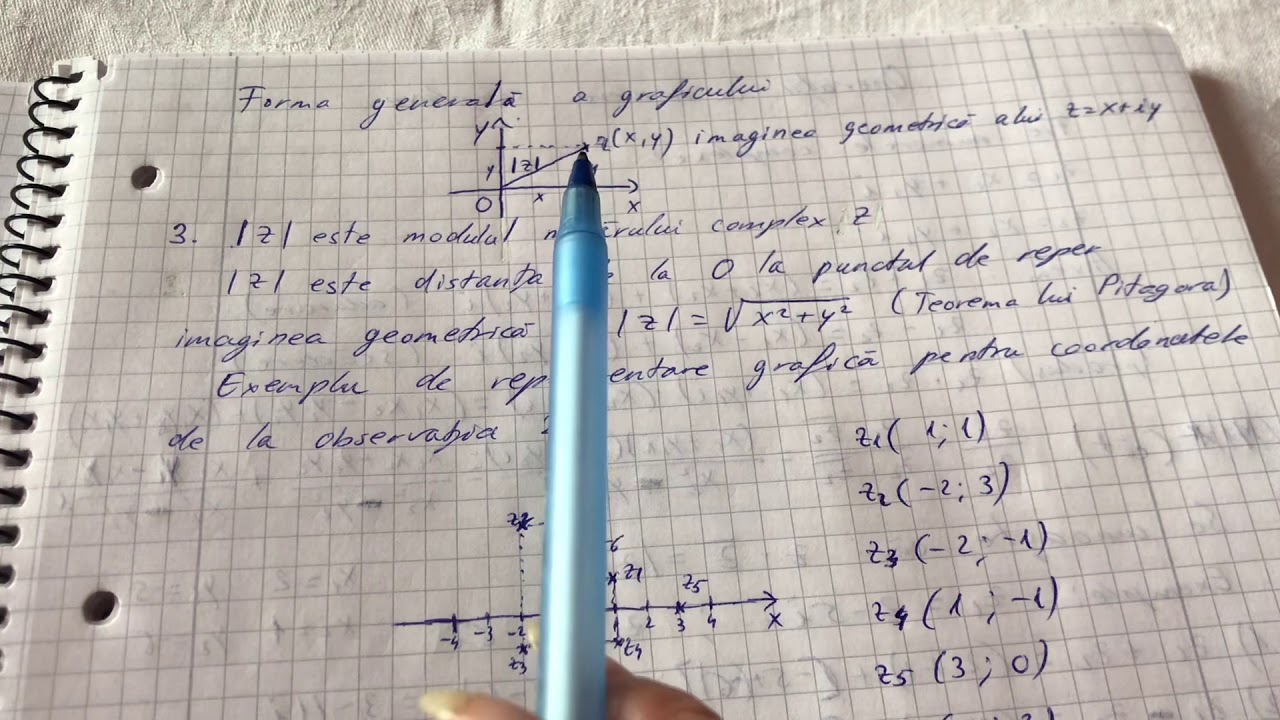 Forma generală a graficului
y z(x,y) imaginea geometrică a lui z=x+iy
y |z|
O x x
3. |z| este modulul complex z
|z| este distanța la O la punctul de reper
imaginea geometrică |z| = √x²+y² (Teorema lui Pitagora)
Exemplu de grafică pentru coordonatele
de la observația
z1( 1; 1)
z2(-2; 3)
z3(-2; -1)
z4(1; -1)
z5(3; 0)
z2
6
z1 z5
-4 -3 -2 1 2 3 4 x
z3 z4